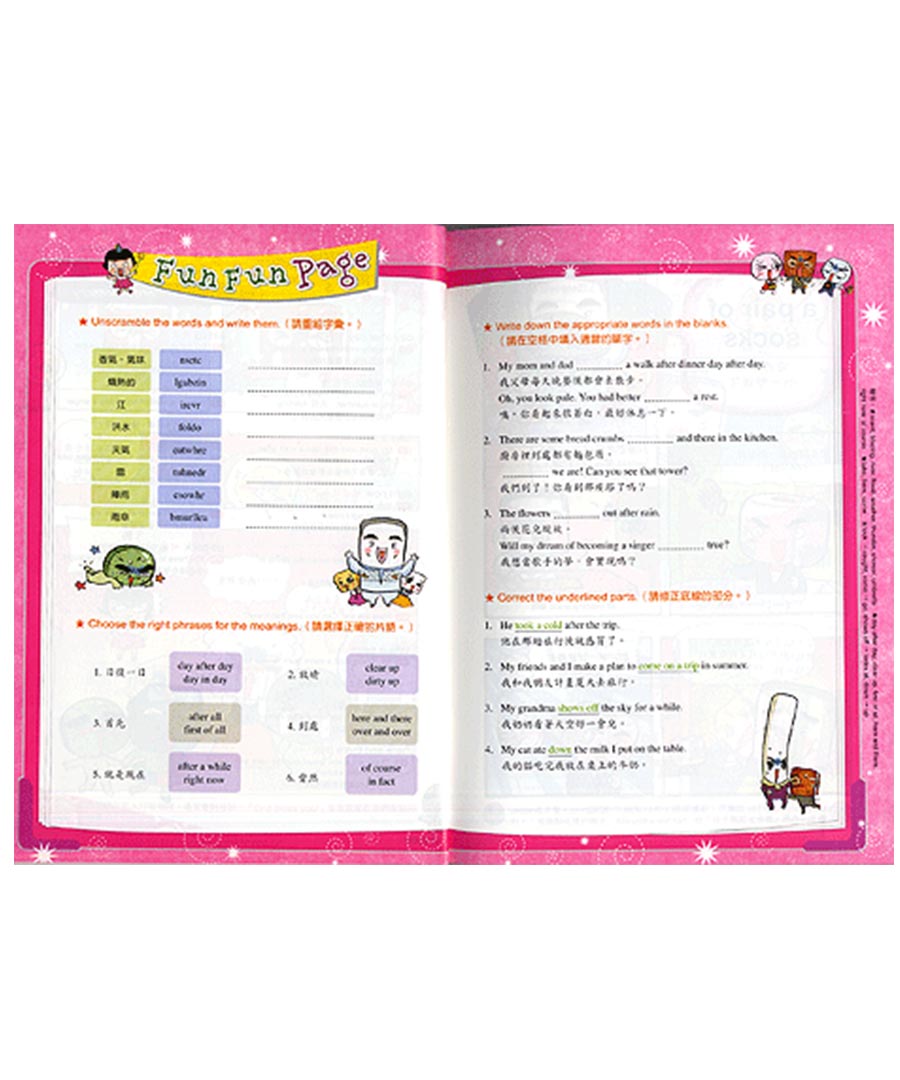 Fun Fun Page
★ Unscramble the words and write them.(請重組字彙。)
香氣、氣味 nsetc
熾熱的 lgabzin
江 irevr
洪水 foldo
天氣 eatwhre
雷 tuhnedr
陣雨 esowhr
雨傘 bmurllea
★ Choose the right phrases for the meanings.(請選擇正確的片語。)
1. 日復一日
day after day
day in day
2. 放晴
clear up
dirty up
3. 首先
after all
first of all
4. 到處
here and there
over and over
5. 就是現在
after a while
right now
6. 當然
of course
in fact
a pair of
socks
★ Write down the appropriate words in the blanks.
(請在空格中填入適當的單字。)
1. My mom and dad ____________ a walk after dinner day after day.
我父母每天晚餐後都會去散步。
Oh, you look pale. You had better ____________ a rest.
噢,你看起來很蒼白。最好休息一下。
2. There are some bread crumbs ____________ and there in the kitchen.
廚房裡到處都有麵包屑。
____________ we are! Can you see that tower?
我們到了!你看到那座塔了嗎?
3. The flowers ____________ out after rain.
雨後花兒綻放。
Will my dream of becoming a singer ____________ true?
我想當歌手的夢,會實現嗎?
★ Correct the underlined parts.(請修正底線的部分。)
1. He took a cold after the trip.
他在那趟旅行後就感冒了。
2. My friends and I make a plan to come on a trip in summer.
我和我朋友計畫夏天去旅行。
3. My grandma shows off the sky for a while.
我奶奶看著天空好一會兒。
4. My cat ate down the milk I put on the table.
我的貓吃完我放在桌上的牛奶。